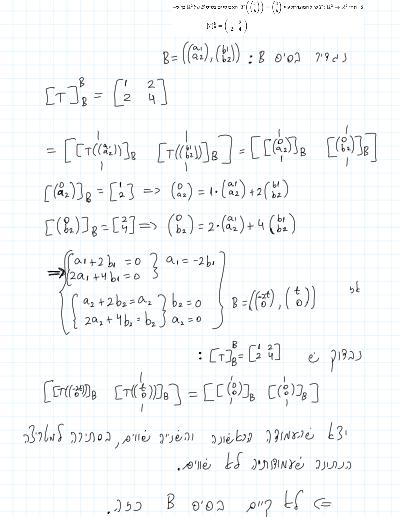 נגדיר בסיס B : B = ((a₁ a₂), (b₁ b₂))
[T]_B^B = [1 2 ; 2 4]
= [[T((a₁ a₂))]_B [T((b₁ b₂))]_B] = [[(0 a₂)]_B [(0 b₂)]_B]
[(0 a₂)]_B = [1 2] => (0 a₂) = 1·(a₁ a₂) + 2(b₁ b₂)
[(0 b₂)]_B = [2 4] => (0 b₂) = 2·(a₁ a₂) + 4(b₁ b₂)
=> { a₁ + 2b₁ = 0
2a₁ + 4b₁ = 0 } a₁ = -2b₁
{ a₂ + 2b₂ = a₂
2a₂ + 4b₂ = b₂ } b₂ = 0 a₂ = 0
B = ((-2t 0), (t 0))
נבדוק ש [T]_B^B = [1 2 ; 2 4] :
[[T((-2t 0))]_B [T((t 0))]_B] = [[(0 0)]_B [(0 0)]_B]
יצא שהעמודה הראשונה והשנייה שווים, בסתירה למטריצה
הנתונה שעמודותיה לא שווים.
=> לא קיים בסיס B כזה.